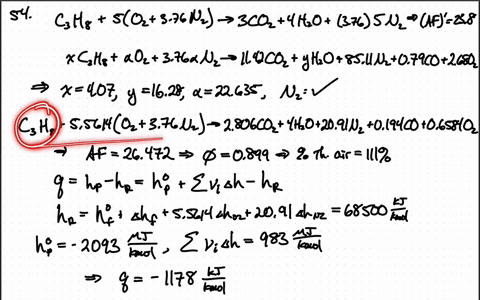 54. C3H8 + 5(O2 + 3.76N2) → 3CO2 + 4H2O + (3.76)5N2 ⇒ (AF)' = 25.8
xC3H8 + αO2 + 3.76αN2 → 11.42CO2 + yH2O + 85.11N2 + 0.79CO + 2.68O2
⇒ x = 4.07, y = 16.28, α = 22.635, N2: ✓
C3H8 + 5.5614(O2 + 3.76N2) → 2.806CO2 + 4H2O + 20.91N2 + 0.194CO + 0.6584O2
→ AF = 26.472 ⇒ Ø = 0.899 ⇒ % Th air = 111%
q = hP - hR = h°P + Σνi Δh - hR
hR = h°f + Δhf + 5.5614ΔhO2 + 20.91ΔhN2 = 68500 kJ/kmol
h°P = -2093 MJ/kmol, Σνi Δh = 983 MJ/kmol
⇒ q = -1178 kJ/kmol